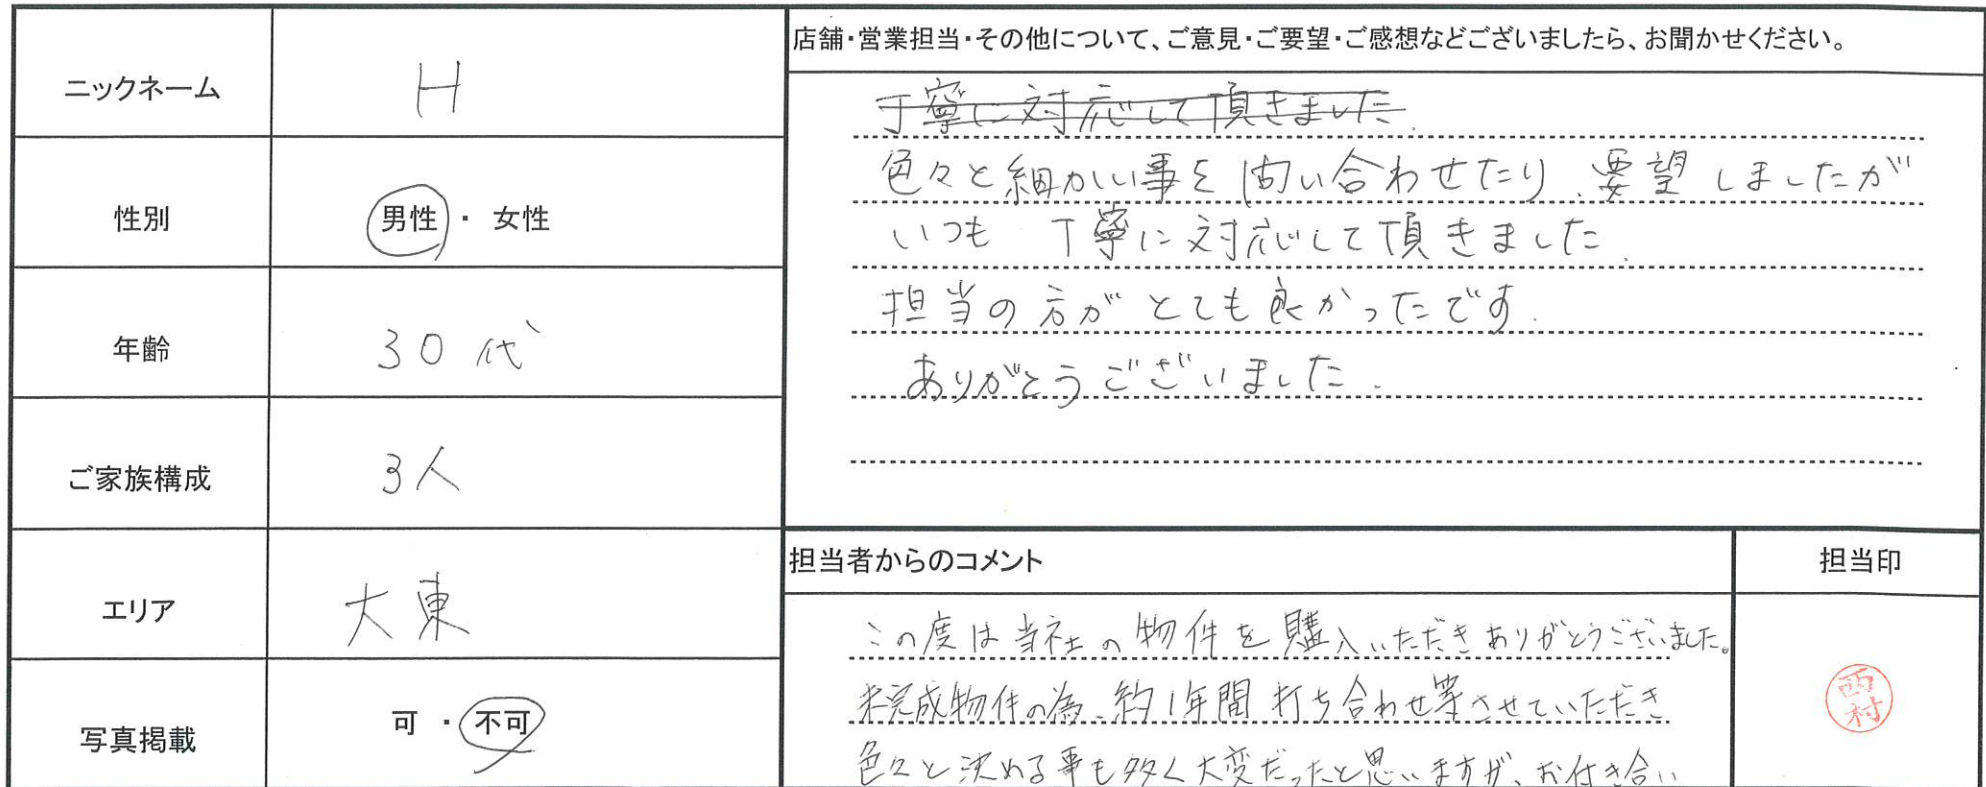 ニックネーム
H
性別
男性 ・ 女性
年齢
30代
ご家族構成
3人
エリア
大東
写真掲載
可 ・ 不可
店舗・営業担当・その他について、ご意見・ご要望・ご感想などございましたら、お聞かせください。
丁寧に対応して頂きました.
色々と細かい事を問い合わせたり、要望しましたが
いつも 丁寧に対応して頂きました.
担当の方がとても良かったです.
ありがとうございました.
担当者からのコメント
この度は当社の物件を購入いただきありがとうございました。
未完成物件の為、約1年間打ち合わせ等させていただき
色々と決める事も多く大変だったと思いますが、お付き合い
担当印
西村